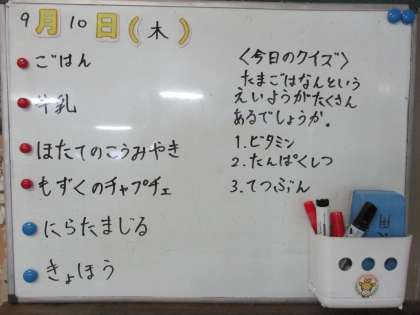 9月10日(木)
ごはん
牛乳
ほたてのこうみやき
もずくのチャプチェ
にらたまじる
きょほう
〈今日のクイズ〉
たまごはなんという
えいようがたくさん
あるでしょうか。
1.ビタミン
2.たんぱくしつ
3.てつぶん